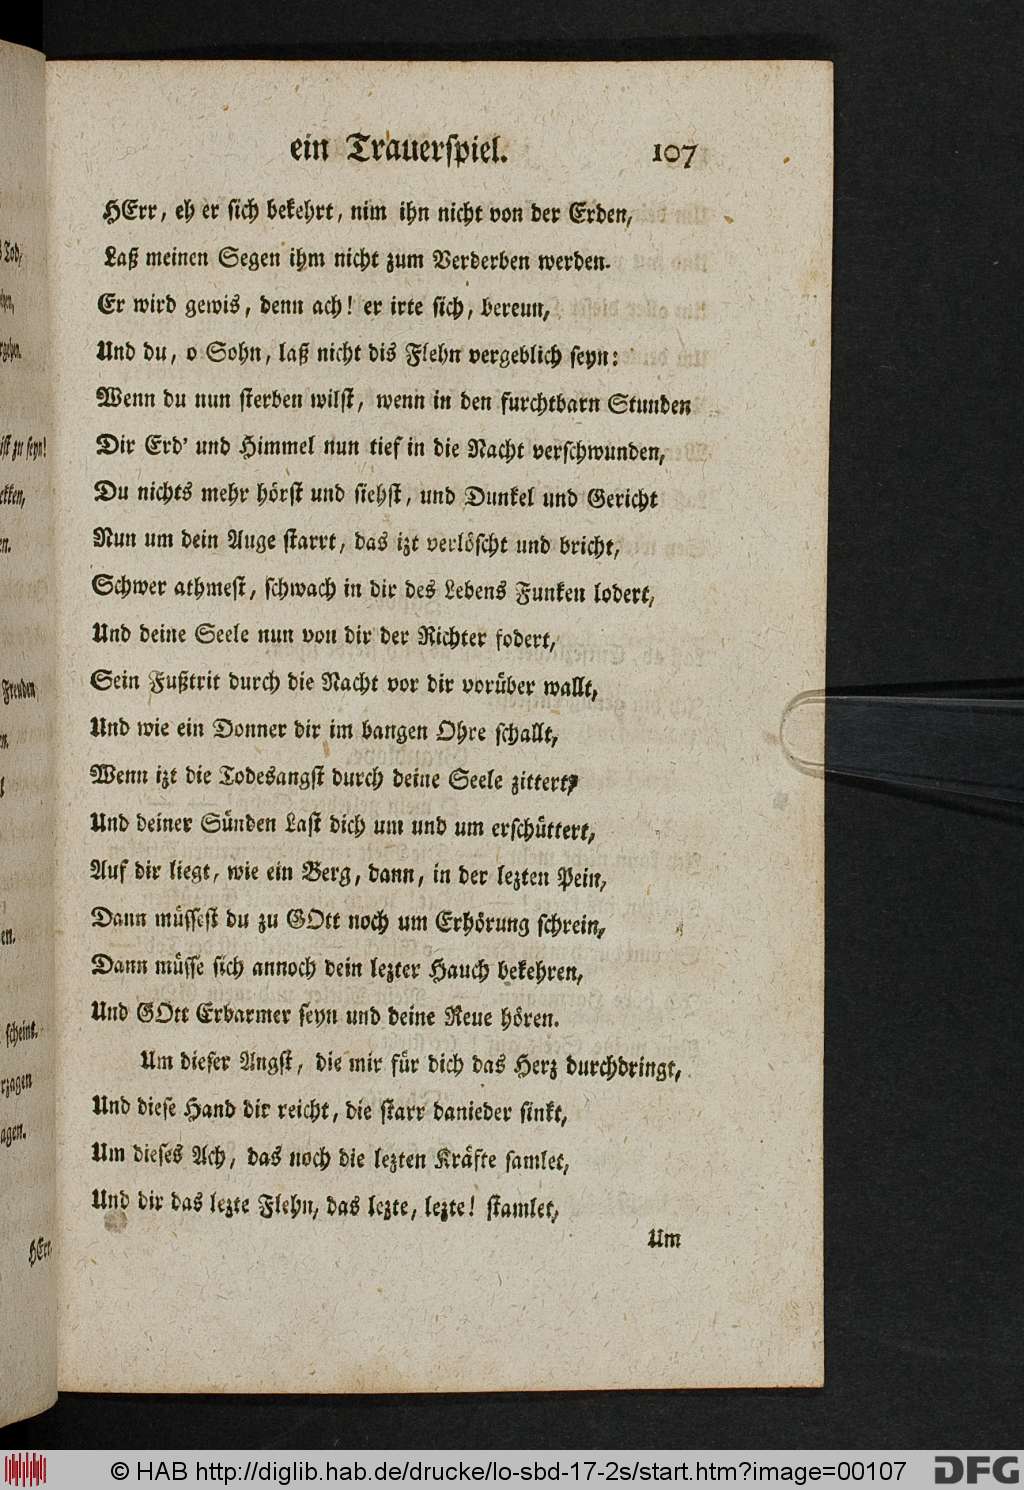 ein Trauerspiel. 107
HErr, eh er sich bekehrt, nim ihn nicht von der Erden,
Laß meinen Segen ihm nicht zum Verderben werden.
Er wird gewis, denn ach! er irte sich, bereun,
Und du, o Sohn, laß nicht dis Flehn vergeblich seyn:
Wenn du nun sterben wilst, wenn in den furchtbarn Stunden
Dir Erd' und Himmel nun tief in die Nacht verschwunden,
Du nichts mehr hörst und siehst, und Dunkel und Gericht
Nun um dein Auge starrt, das izt verlöscht und bricht,
Schwer athmest, schwach in dir des Lebens Funken lodert,
Und deine Seele nun von dir der Richter fodert,
Sein Fußtrit durch die Nacht vor dir vorüber wallt,
Und wie ein Donner dir im bangen Ohre schallt,
Wenn izt die Todesangst durch deine Seele zittert,
Und deiner Sünden Last dich um und um erschüttert,
Auf dir liegt, wie ein Berg, dann, in der lezten Pein,
Dann müssest du zu GOtt noch um Erhörung schrein,
Dann müsse sich annoch dein lezter Hauch bekehren,
Und GOtt Erbarmer seyn und deine Reue hören.
Um dieser Angst, die mir für dich das Herz durchdringt,
Und diese Hand dir reicht, die starr danieder sinkt,
Um dieses Ach, das noch die lezten Kräfte samlet,
Und dir das lezte Flehn, das lezte, lezte! stamlet,
Um
Tod,
ist zu seyn!
ekken,
Freuden
scheint.
rzagen
agen.
HErr,
© HAB http://diglib.hab.de/drucke/lo-sbd-17-2s/start.htm?image=00107
DFG